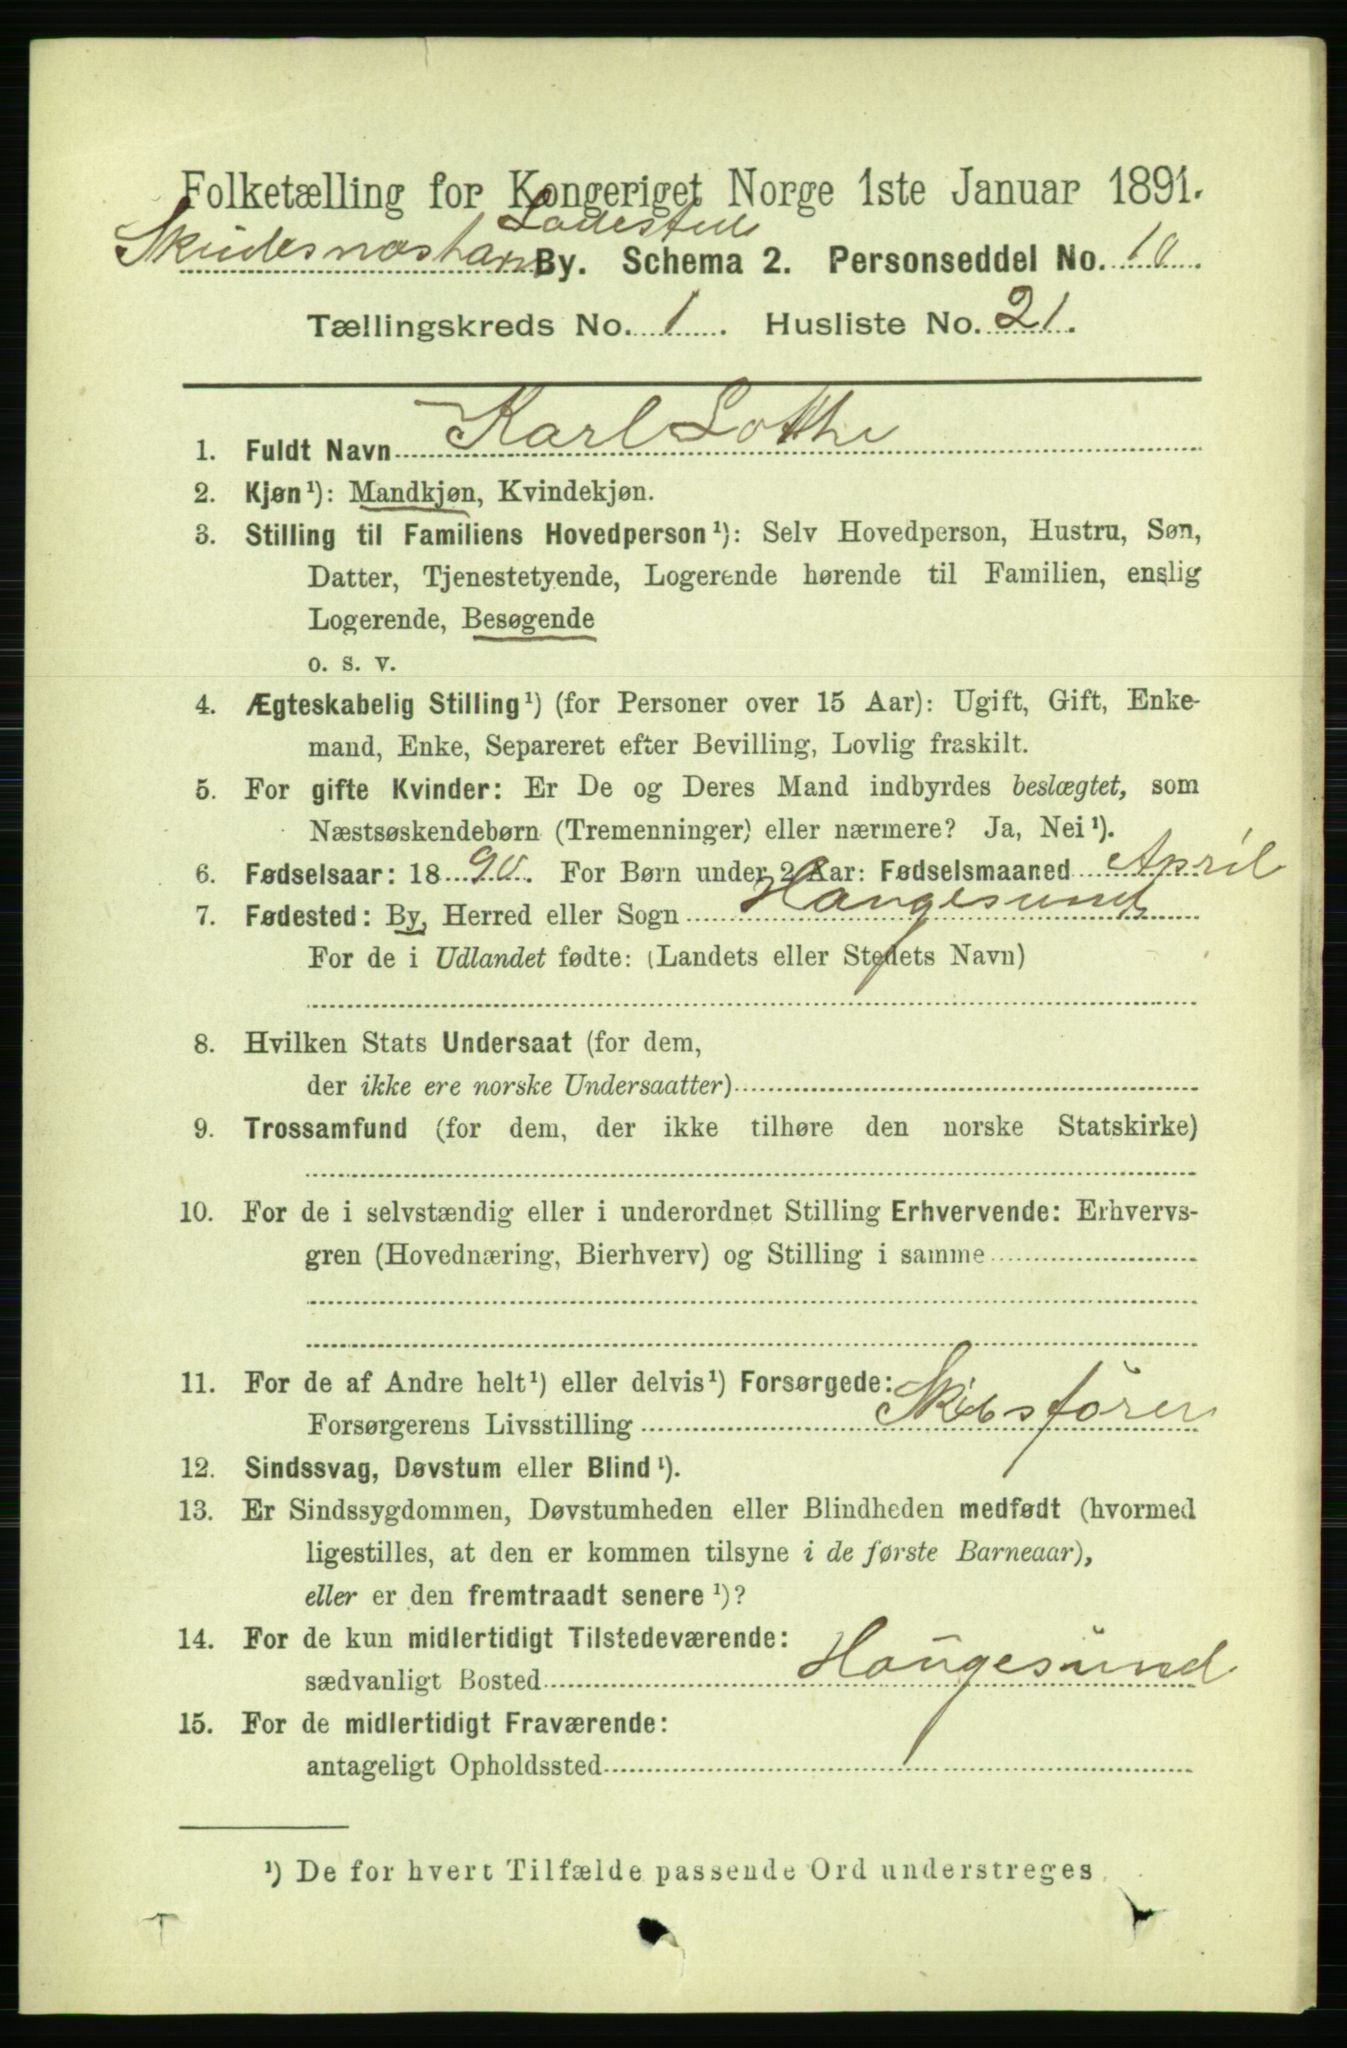 Folketælling for Kongeriget Norge 1ste Januar 1891.
Ladested
Skudesneshavn By. Schema 2. Personseddel No. 10.
Tællingskreds No. 1. Husliste No. 21.
1. Fuldt Navn Karl Lothe
2. Kjøn¹): Mandkjøn, Kvindekjøn.
3. Stilling til Familiens Hovedperson¹): Selv Hovedperson, Hustru, Søn,
Datter, Tjenestetyende, Logerende hørende til Familien, enslig
Logerende, Besøgende
o. s. v.
4. Ægteskabelig Stilling¹) (for Personer over 15 Aar): Ugift, Gift, Enke-
mand, Enke, Separeret efter Bevilling, Lovlig fraskilt.
5. For gifte Kvinder: Er De og Deres Mand indbyrdes beslægtet, som
Næstsøskendebørn (Tremenninger) eller nærmere? Ja, Nei¹).
6. Fødselsaar: 1890. For Børn under 2 Aar: Fødselsmaaned April
7. Fødested: By, Herred eller Sogn Haugesund
For de i Udlandet fødte: (Landets eller Stedets Navn)
8. Hvilken Stats Undersaat (for dem,
der ikke ere norske Undersaatter)
9. Trossamfund (for dem, der ikke tilhøre den norske Statskirke)
10. For de i selvstændig eller i underordnet Stilling Erhvervende: Erhvervs-
gren (Hovednæring, Bierhverv) og Stilling i samme
11. For de af Andre helt¹) eller delvis¹) Forsørgede:
Forsørgerens Livsstilling Skibsfører
12. Sindssvag, Døvstum eller Blind¹).
13. Er Sindssygdommen, Døvstumheden eller Blindheden medfødt (hvormed
ligestilles, at den er kommen tilsyne i de første Barneaar),
eller er den fremtraadt senere¹)?
14. For de kun midlertidigt Tilstedeværende:
sædvanligt Bosted Haugesund
15. For de midlertidigt Fraværende:
antageligt Opholdssted
¹) De for hvert Tilfælde passende Ord understreges.